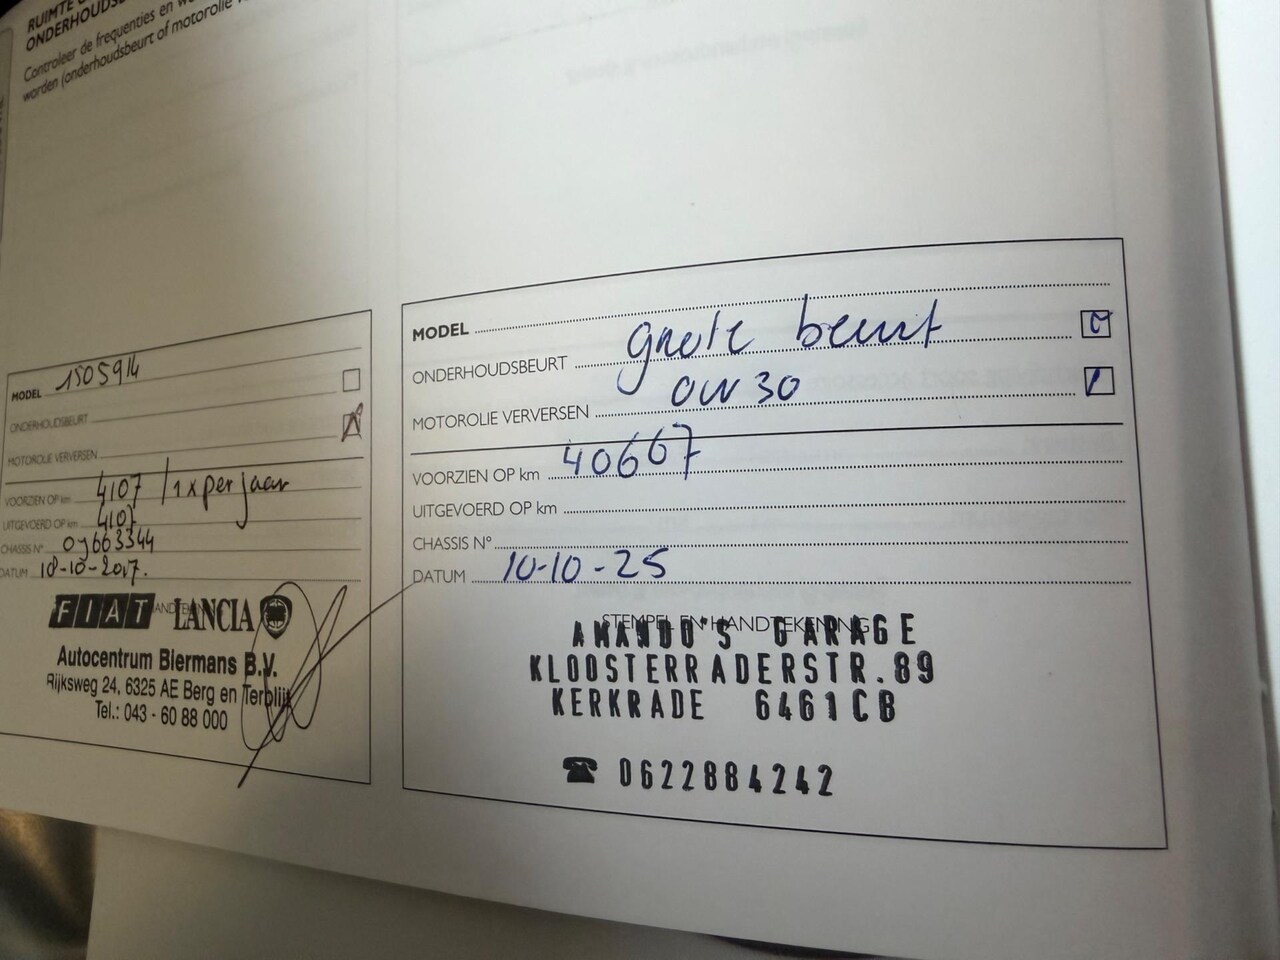 RUIMTE
ONDERHOUDS
Controleer de frequenties en
worden (onderhoudsbeurt of motorolie
MODEL 1505914
ONDERHOUDSBEURT
MOTOROLIE VERVERSEN
VOORZIEN OP km 4107 / 1x per jaar
UITGEVOERD OP km 4107
CHASSIS N° 0J663344
DATUM 18-10-2017.
FIAT LANCIA
Autocentrum Biermans B.V.
Rijksweg 24, 6325 AE Berg en Terblijt
Tel.: 043 - 60 88 000
MODEL
ONDERHOUDSBEURT grote beurt
MOTOROLIE VERVERSEN 0W30
VOORZIEN OP km 40667
UITGEVOERD OP km
CHASSIS N°
DATUM 10-10-25
STEMPEL EN HANDTEKENING
AMANDO'S GARAGE
KLOOSTERRADERSTR.89
KERKRADE 6461CB
☎ 0622884242